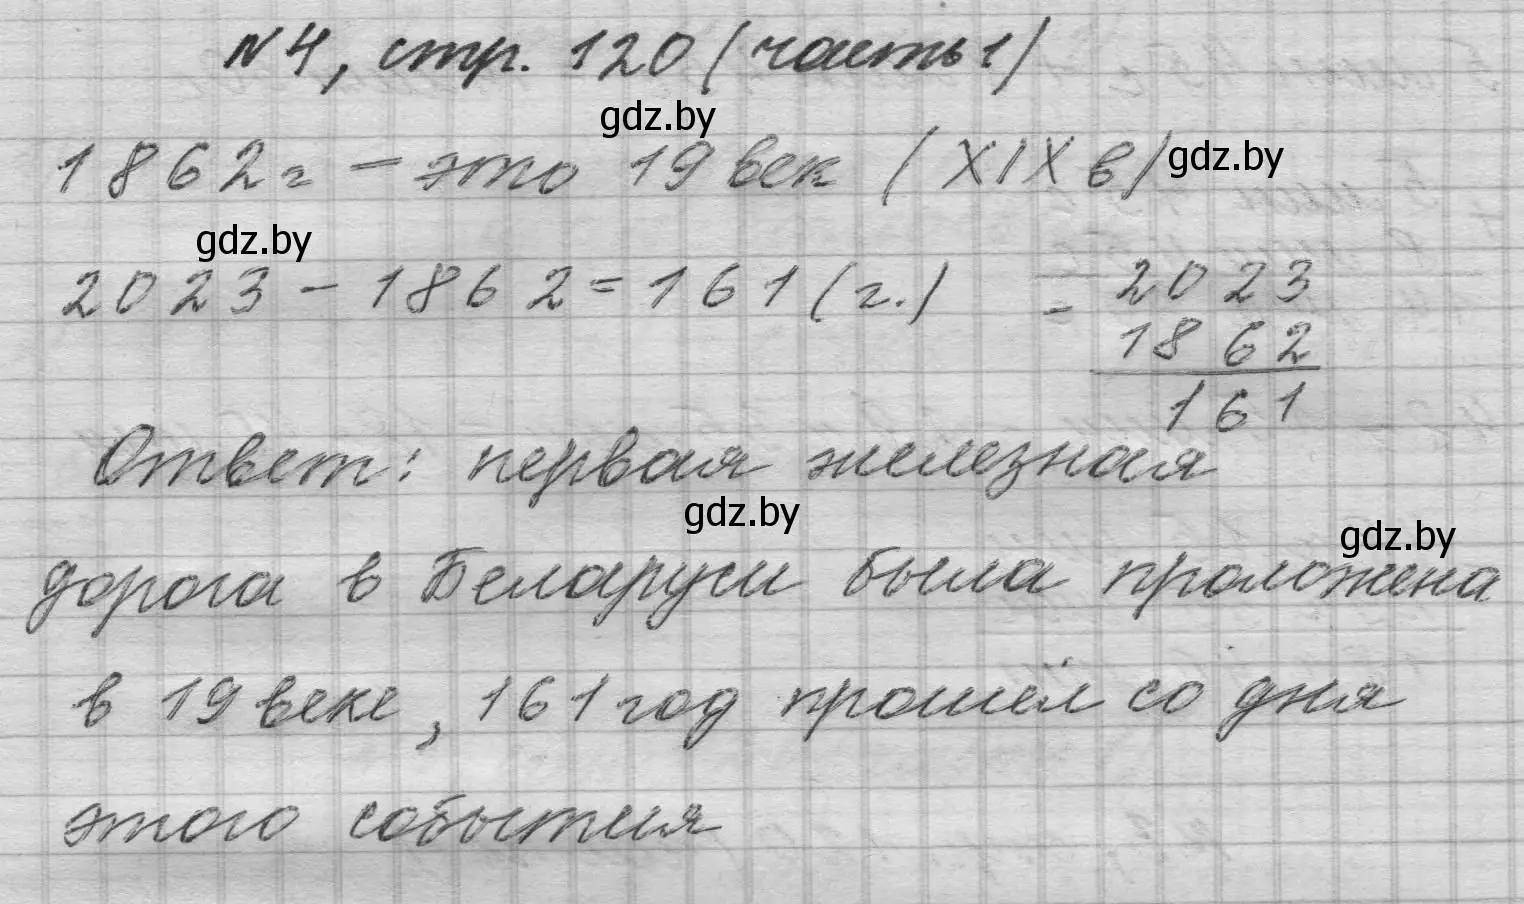 №4, стр. 120 (часть 1)
gdz.by
1862г – это 19 век (XIX в)
gdz.by
gdz.by
2023 – 1862 = 161 (г.)
- 2023
1862
161
Ответ: первая железная
gdz.by
gdz.by
дорога в Беларуси была проложена
в 19 веке, 161 год прошёл со дня
этого события